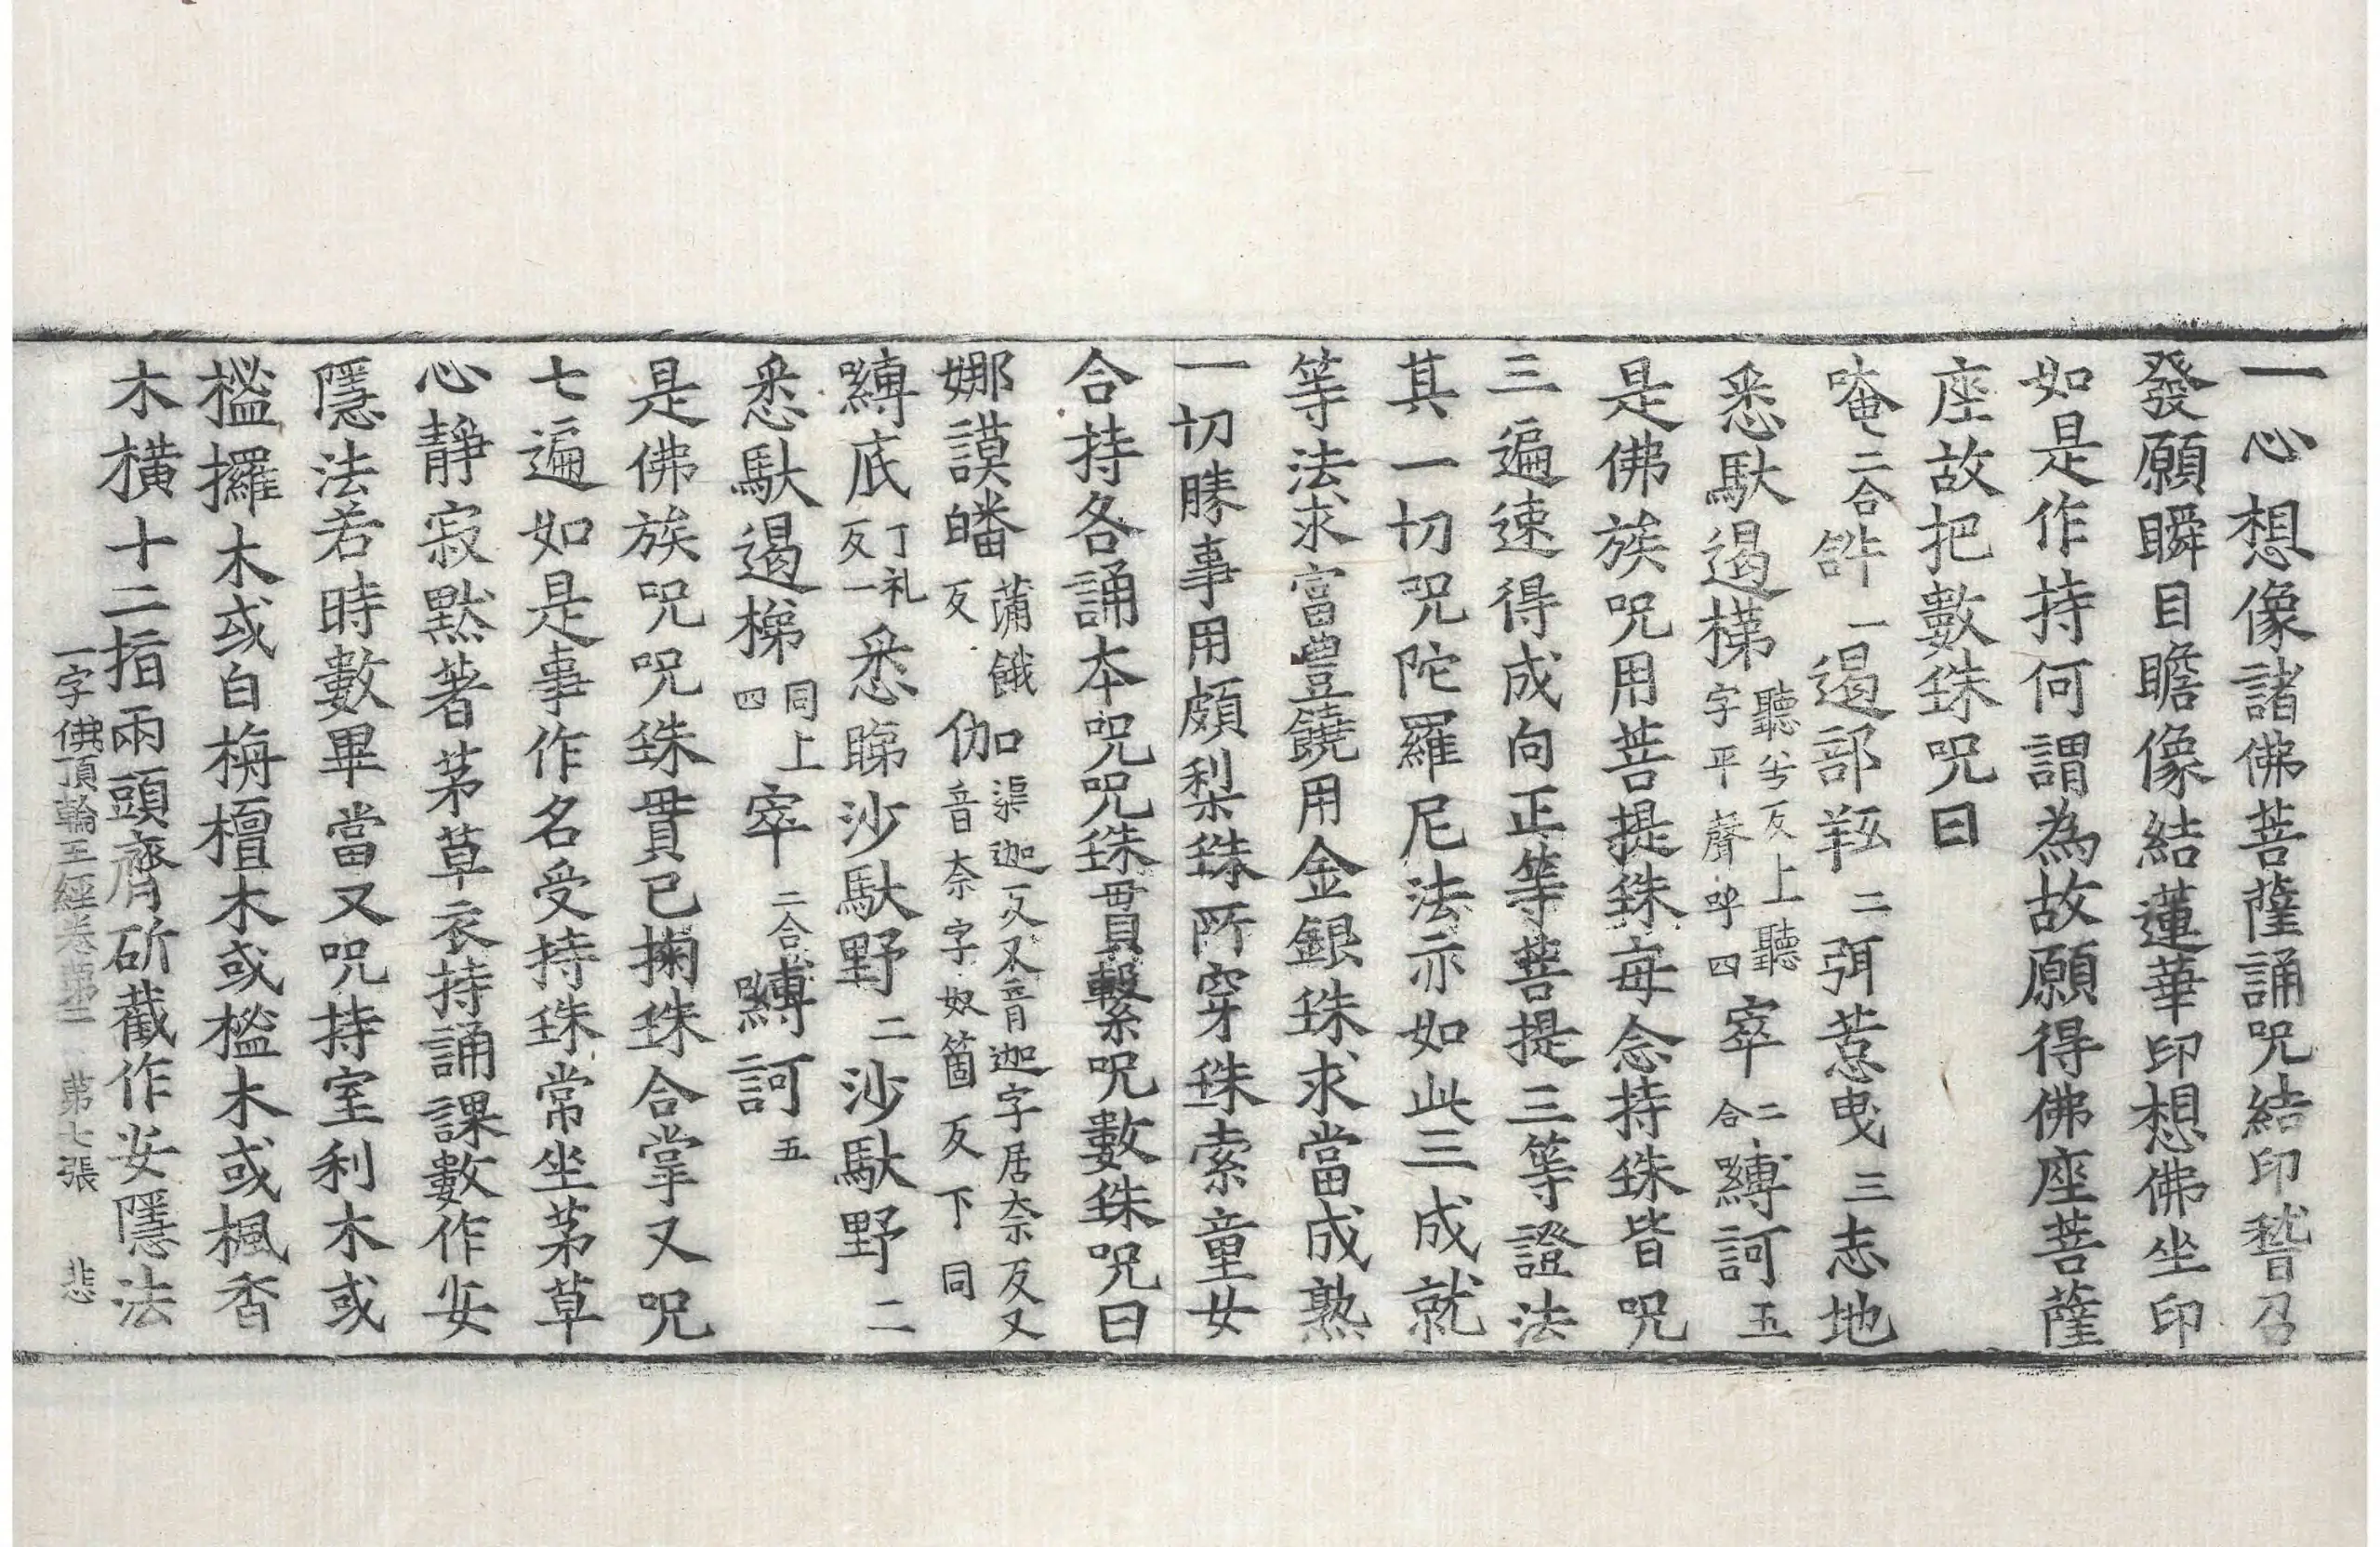 一心想像諸佛菩薩誦咒結印稽召
發願瞬目瞻像結蓮華印想佛坐印
如是作持何謂為故願得佛座菩薩
座故把數珠咒曰
唵二合𤙖一遏部羝二弭惹曳三志地
悉馱遏梯聽兮反上聽字平聲呼四窣二合縛訶五
是佛族咒用菩提珠每念持珠皆咒
三遍速得成向正等菩提三等證法
其一切咒陀羅尼法亦如此三成就
等法求富豐饒用金銀珠求當成熟
一切勝事用頗梨珠所穿珠索童女
合持各誦本咒咒珠貫繫咒數珠咒曰
娜謨皤蒲餓反伽渠迦反又音迦字居奈反又音奈字奴箇反下同
縛底丁礼反一悉睇沙馱野二沙馱野二
悉馱遏梯同上四窣二合縛訶五
是佛族咒咒珠貫已掬珠合掌又咒
七遍如是事作名受持珠常坐茅草
心靜寂默著茅草衣持誦課數作安
隱法若時數畢當又咒持室利木或
㮈攞木或白栴檀木或㮈木或楓香
木橫十二指兩頭齊斫截作安隱法
一字佛頂輪王經卷第二 第七張 悲